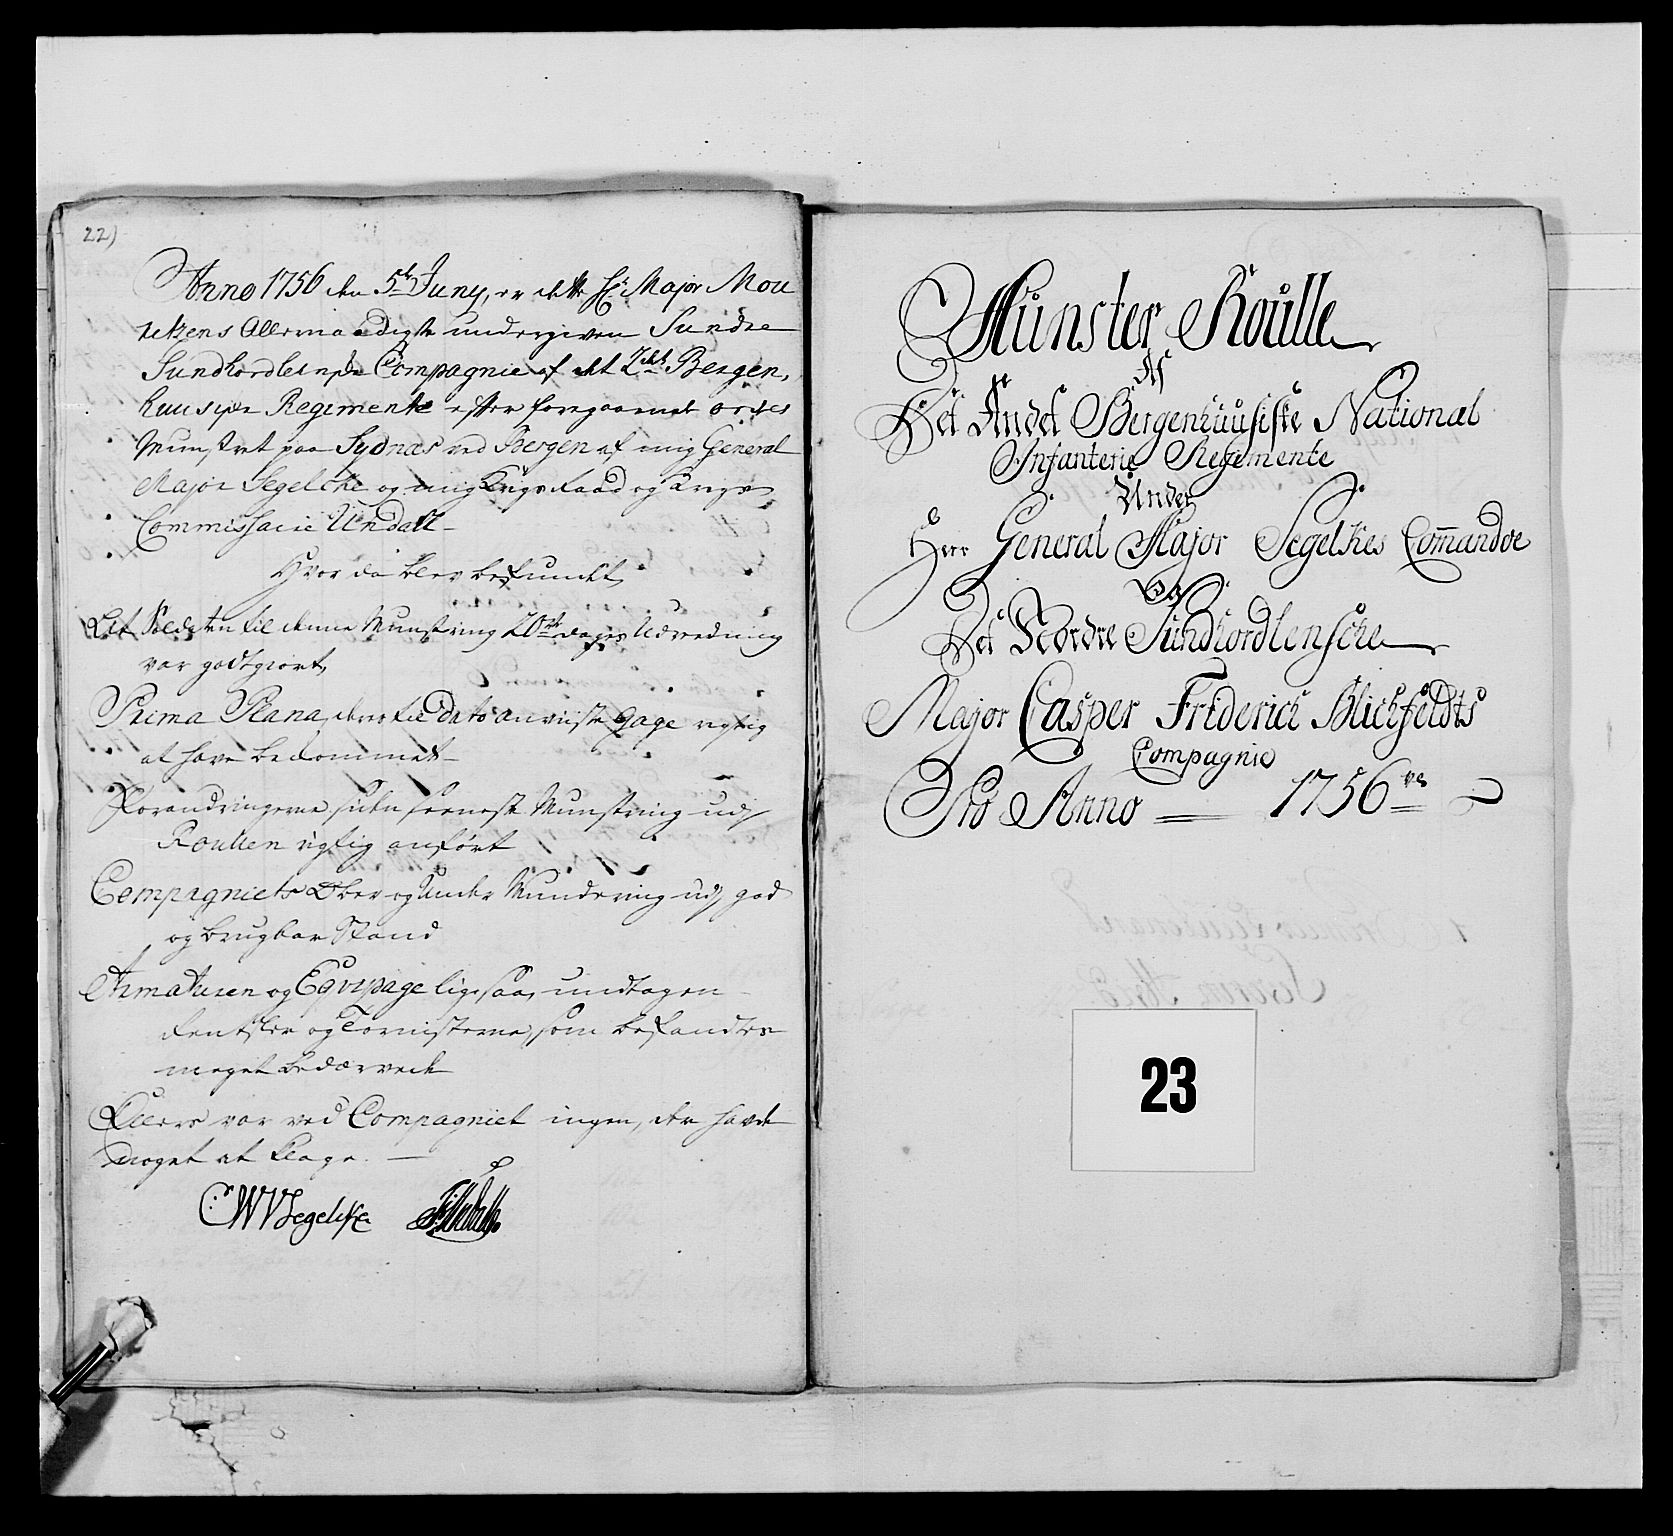 22)
Anno 1756 den 5t Juny, er dette Hr Major Mou
ritzens Allernaadigste undergivne Sundre
Sundhordlenske Compagnie af det 2det Bergen,
huusiske Regimente efter foregaaende ordres
Munstret paa Sydnæs ved Bergen af mig General
Major Segelcke og mig Krigs Raad og Krigs
Commissarie Undall
Hvor da blev befundet,
At Soldaten til denne Munstring dages Udredning
var godtgiort,
Prima Plana, deres til dato anviiste Gage rigtig
at have bekommet
Forandringerne siden seeneste Munstring udj
Roullen rigtig anført
Compagniets Over og Under Mundering udj god
og brugbar Stand
Armaturen og Eqvipage ligesaa, undtagen
og Tornisterne, som befandtes
meget bedærvede
Ellers var ved Compagniet ingen, der havde
noget at klage.
CWVSegelcke
Munster Roulle
Af
Det Andet Bergenhuusiske National
Infanterie Regimente
Under
Herr General Major Segelkes Comandoe
Og
Det Nordre Sundhordlensche
Major Casper Friderich Blichfeldts
Compagnie
Pro Anno 1756
23